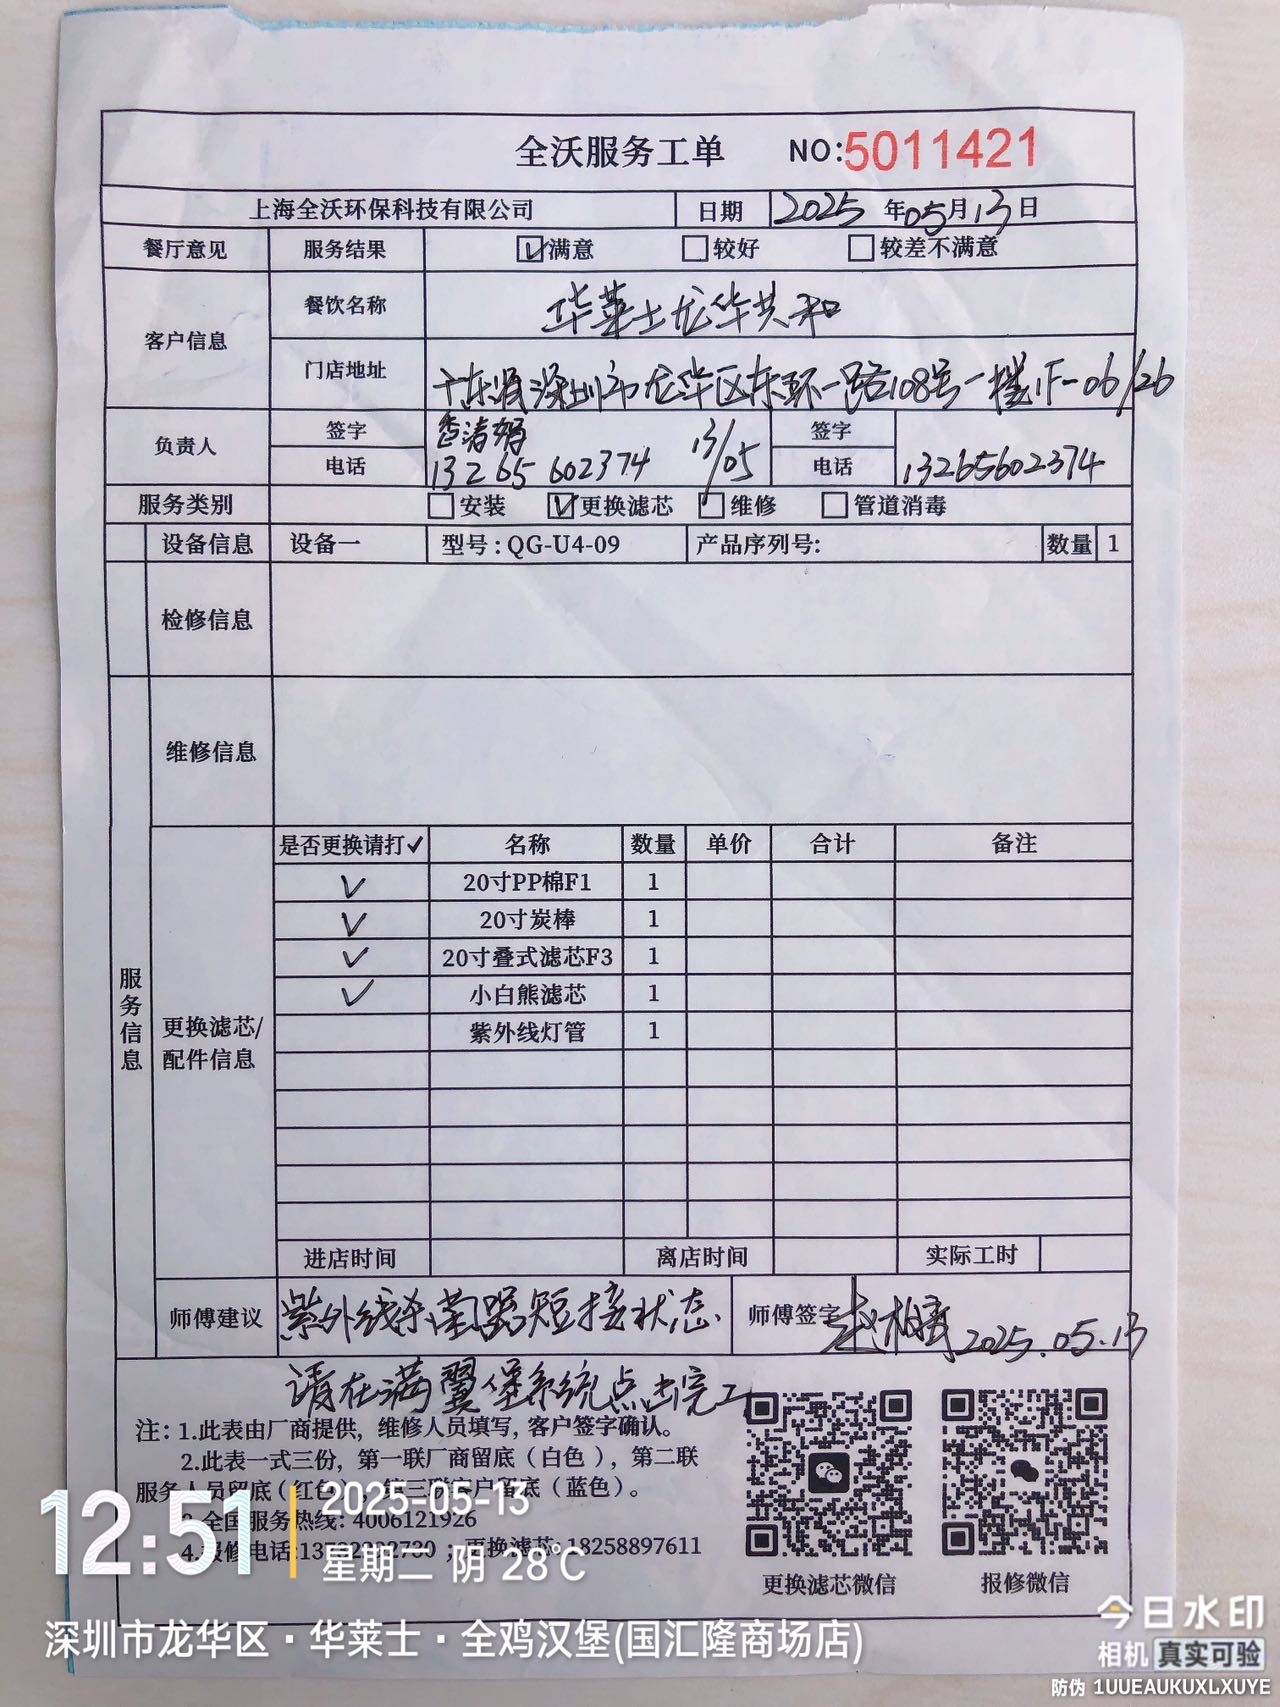 全沃服务工单 NO:5011421
上海全沃环保科技有限公司 日期 2025 年 05 月 13 日
餐厅意见 服务结果 ☑满意 □较好 □较差不满意
客户信息 餐饮名称 华莱士龙华共和
门店地址 广东省深圳市龙华区东环一路108号一楼1F-06/26
负责人 签字 13/05 签字
电话 13265602374 电话 13265602374
服务类别 □安装 ☑更换滤芯 □维修 □管道消毒
设备信息 设备一 型号:QG-U4-09 产品序列号: 数量 1
检修信息
维修信息
服务信息
更换滤芯/
配件信息
是否更换请打✓ 名称 数量 单价 合计 备注
✓ 20寸PP棉F1 1
✓ 20寸炭棒 1
✓ 20寸叠式滤芯F3 1
✓ 小白熊滤芯 1
紫外线灯管 1
进店时间 离店时间 实际工时
师傅建议 紫外线杀菌器短接状态. 师傅签字 2025.05.13
请在满翼堡系统点击完工
注: 1.此表由厂商提供, 维修人员填写, 客户签字确认。
2.此表一式三份, 第一联厂商留底（白色）, 第二联
服务人员留底（红色） 第三联客户留底（蓝色）。
3.全国服务热线: 4006121926
4.报修电话: ；更换滤芯:18258897611
更换滤芯微信 报修微信
12:51
2025-05-13
星期二 阴 28℃
深圳市龙华区·华莱士·全鸡汉堡(国汇隆商场店)
今日水印
相机 真实可验
防伪 1UUEAUKUXLXUYE